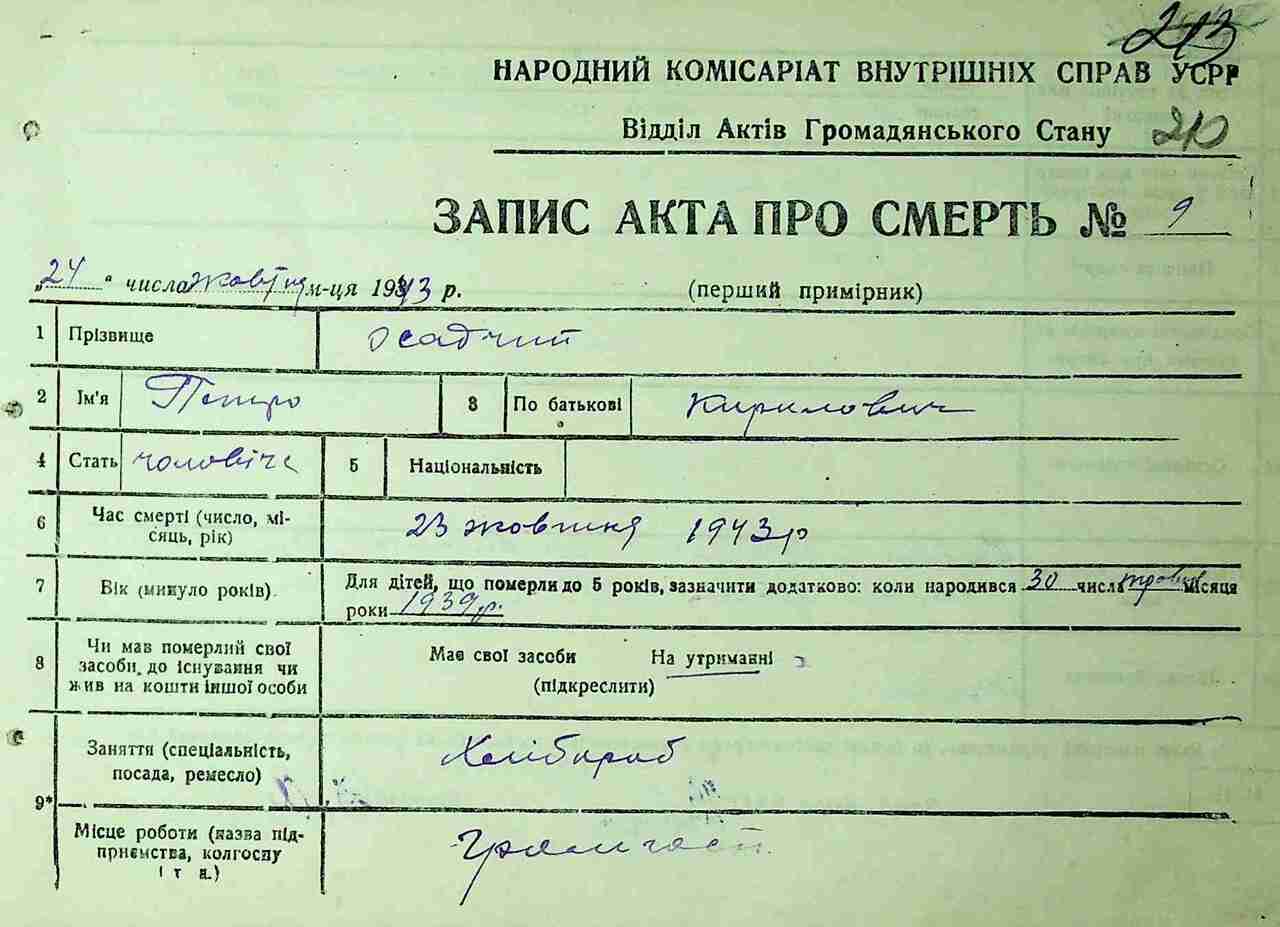 213
НАРОДНИЙ КОМІСАРІАТ ВНУТРІШНІХ СПРАВ УСРР
Відділ Актів Громадянського Стану 210
ЗАПИС АКТА ПРО СМЕРТЬ № 9
„24“ числа жовтня м-ця 1943 р. (перший примірник)
1 Прізвище Осадчий
2 Ім'я Петро 3 По батькові Кирилович
4 Стать чоловіча 5 Національність
6 Час смерті (число, мі-
сяць, рік) 23 жовтня 1943 р
7 Вік (минуло років). Для дітей, що померли до 5 років, зазначити додатково: коли народився 30 числа травня місяця
роки 1939 р.
8 Чи мав померлий свої
засоби до існування чи
жив на кошти іншої особи
Має свої засоби На утриманні
(підкреслити)
9* Заняття (спеціальність,
посада, ремесло) Хлібороб
Місце роботи (назва під-
приємства, колгоспу
і т д.)